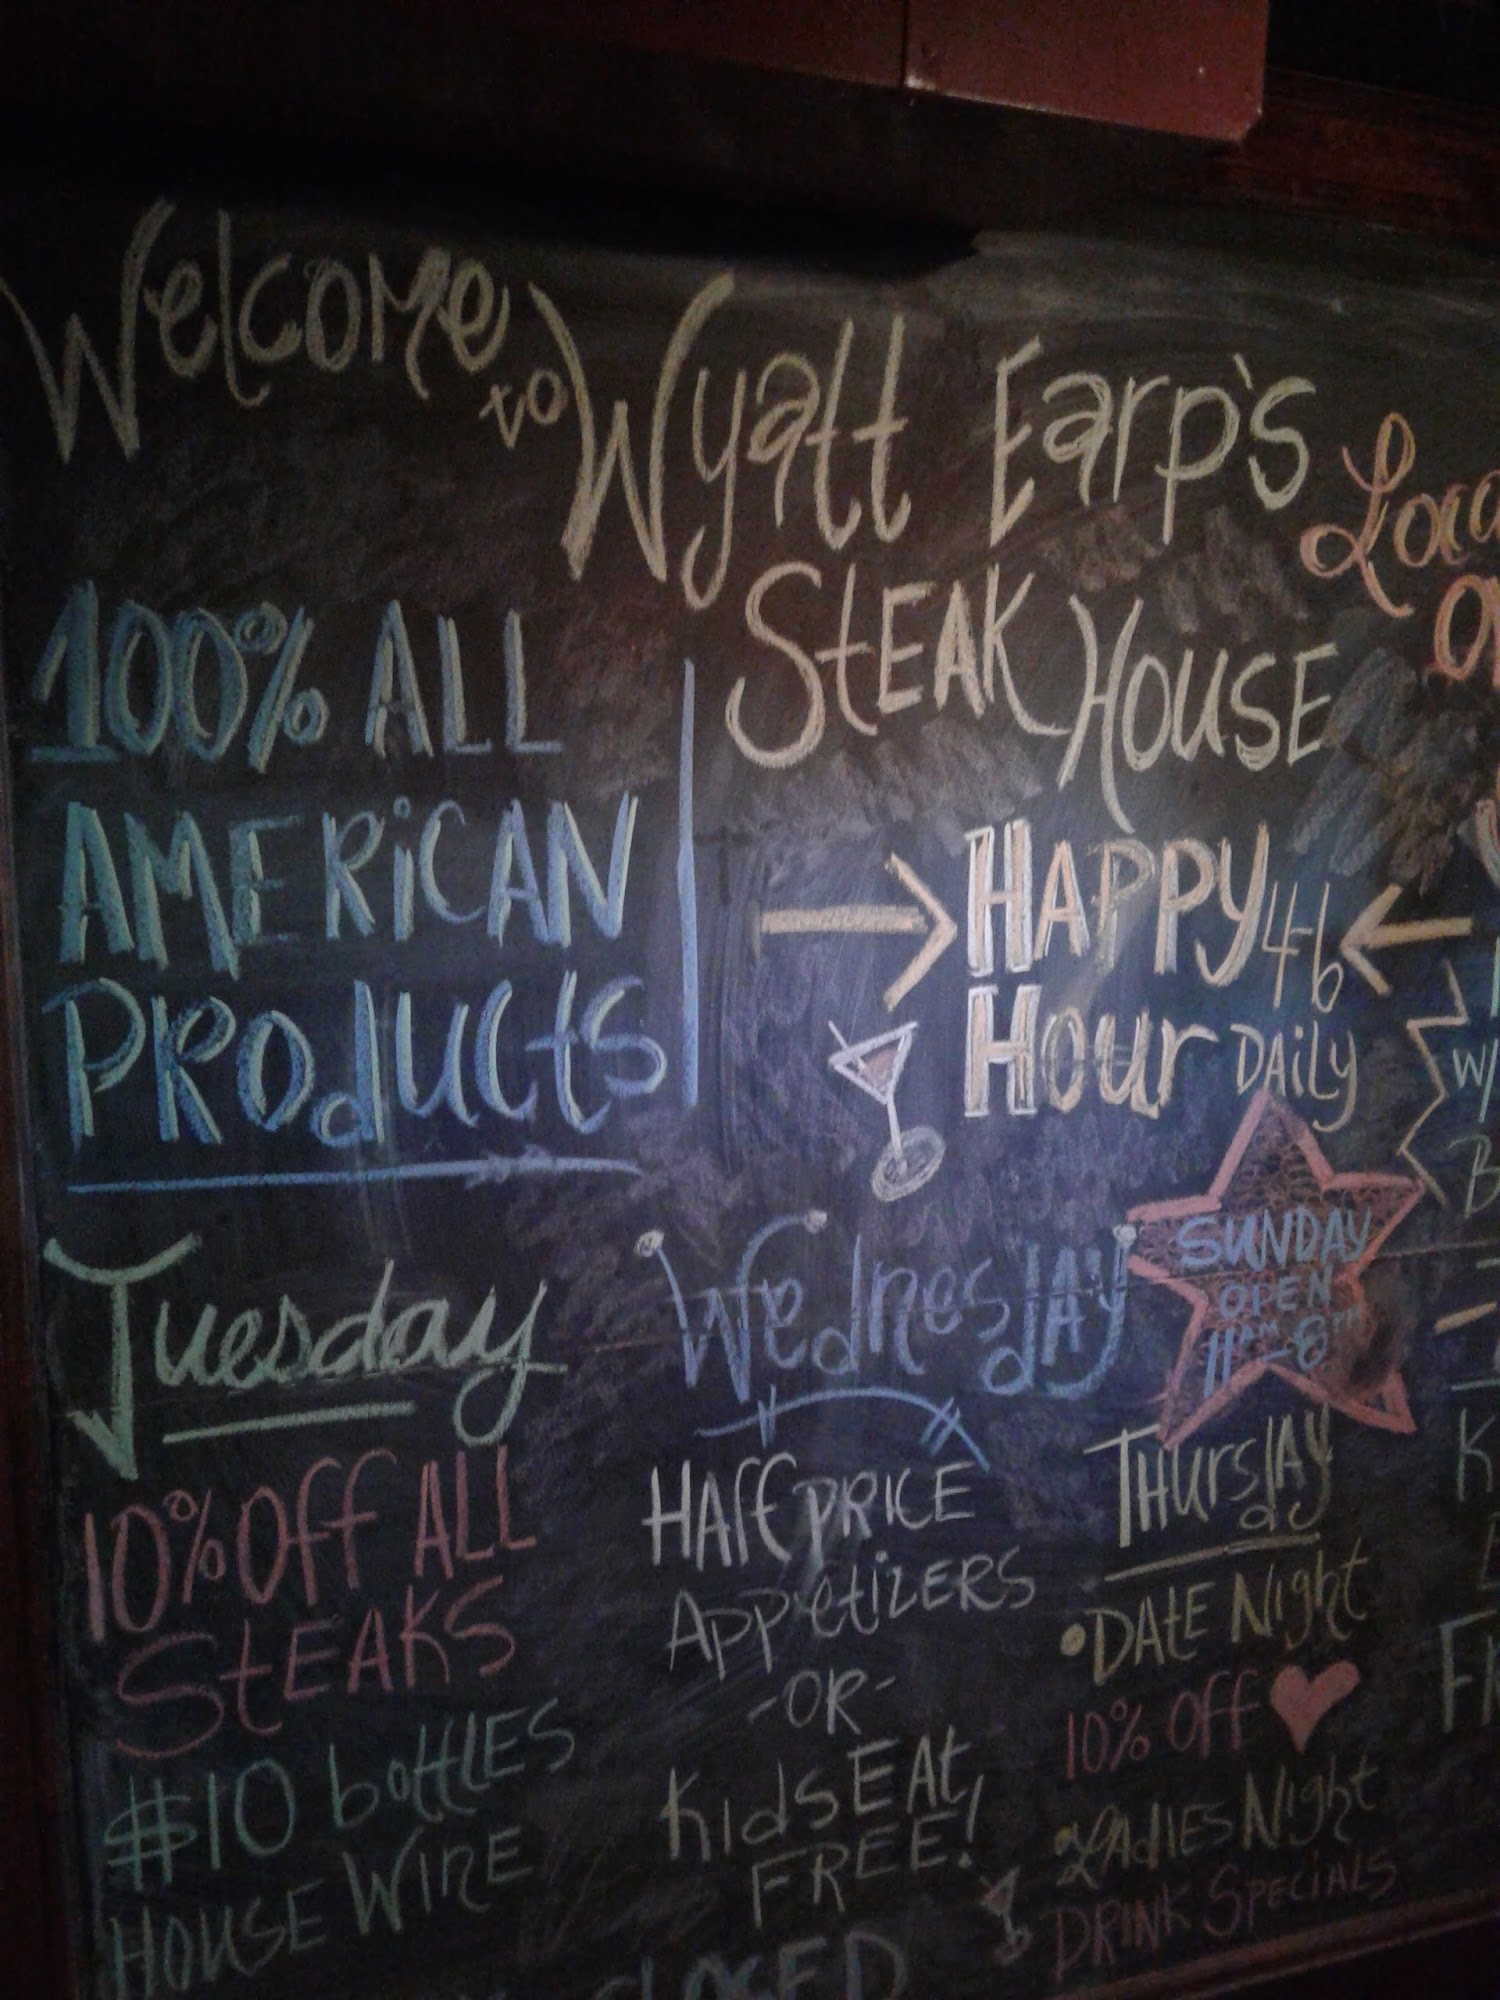 Welcome
to Wyatt Earp's
Steak House
100% ALL
AMERiCAN
PRoducts
HAPPY 4-6
Hour DAiLy
SUNDAY
OPEN
11AM-8PM
w/
Tuesday
10% Off ALL
StEAKS
$10 bottlES
HOUSE WinE
WednesdAy
HAlf PRICE
AppetizERS
-OR-
Kids EAt
FREE!
CLOSED
ThursdAy
• DAtE Night
10% Off
• LAdiES Night
DRINK SpEciALS